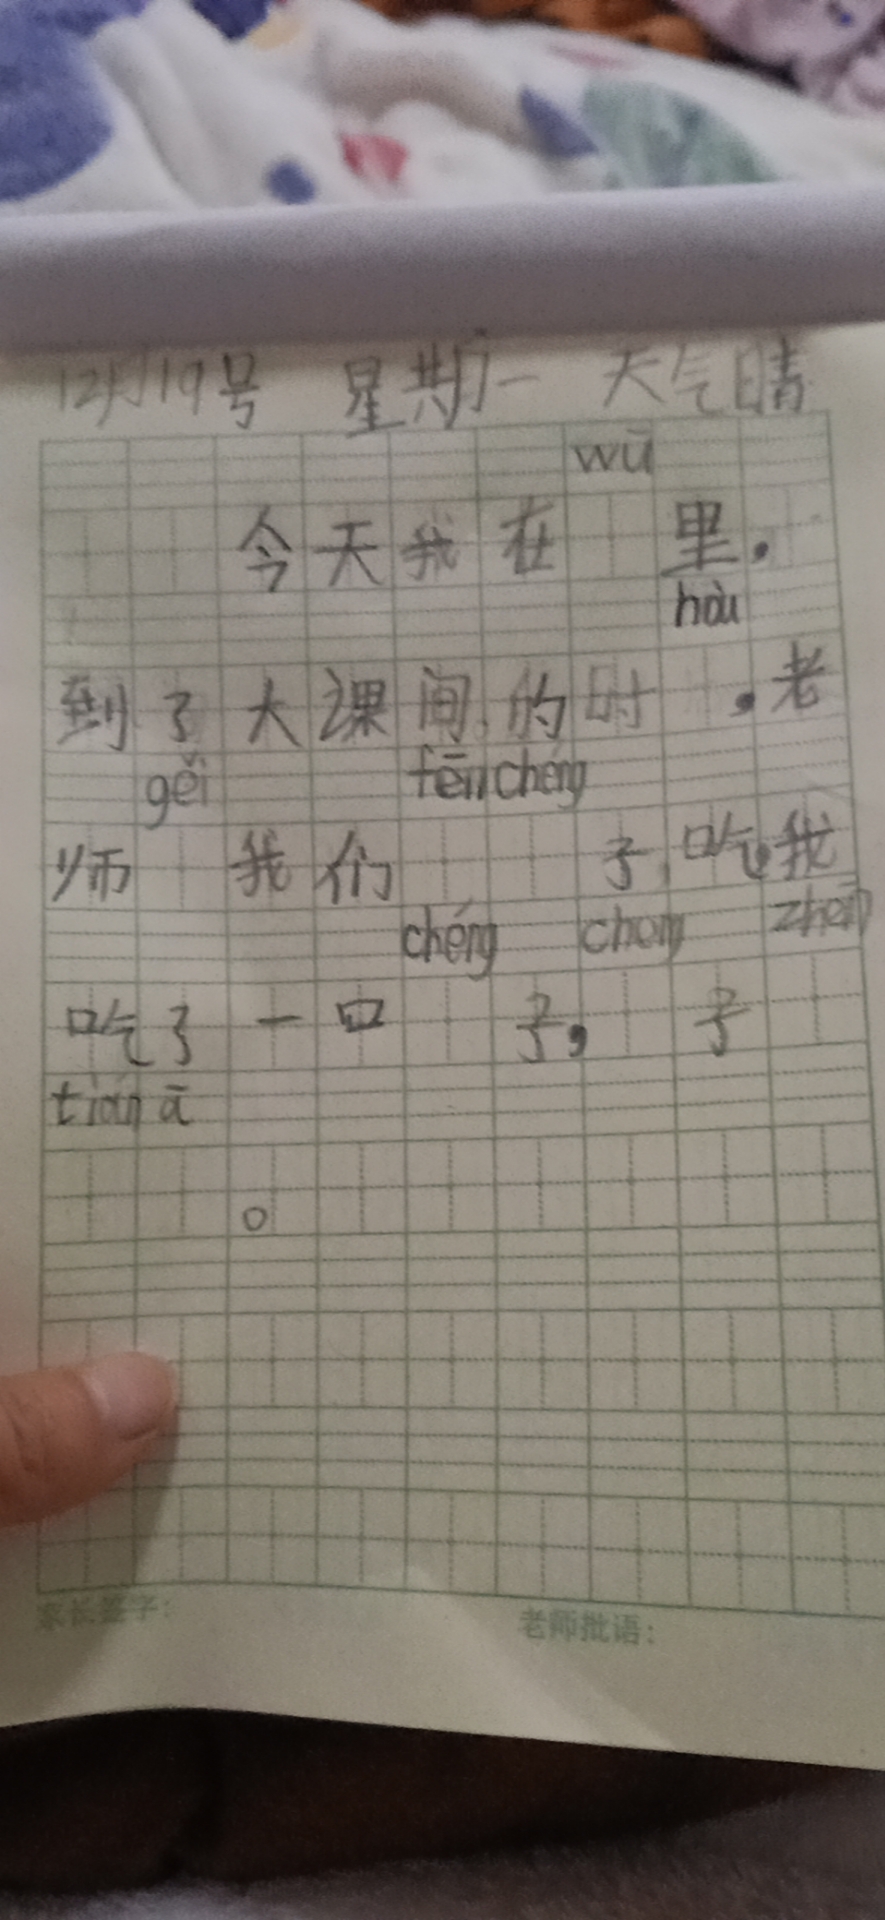 12月19号 星期一 天气晴
wū
今天我在 里，
hòu
到了大课间的时 ，老
gěi fēn chéng
师 我们 子，吃，我
chéng chéng zhēn
吃了一口 子， 子
tián ā
。
家长签字： 老师批语：